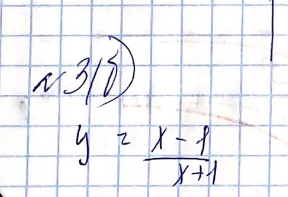 №3(б)
y = x-1/x+1